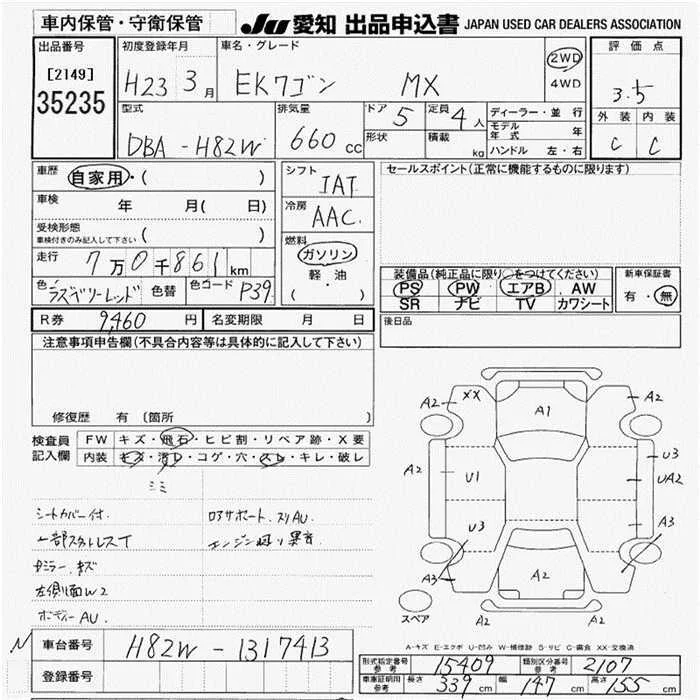 車内保管・守衛保管 JU 愛知 出品申込書 JAPAN USED CAR DEALERS ASSOCIATION
出品番号 初度登録年月 車名・グレード 評価点
[2149] H23 3月 EKワゴン MX 2WD 3.5
35235 4WD
型式 排気量 ドア 5 定員 4人 ディーラー・並行 外装 内装
DBA-H82W 660cc 形状 積載 kg モデル年式 年 C C
ハンドル 左・右
車歴 自家用・( ) シフト IAT セールスポイント(正常に機能するものに限ります)
車検 年 月( 日) 冷房 AAC
受検形態 ( )
車検付きのみ記入して下さい
走行 7万0千861km 燃料 ガソリン 装備品(純正品に限り○をつけてください) 新車保証書
色 ラズベリーレッド 色替 色コード P39 軽・油 PS PW エアB AW 有・無
( ) SR ナビ TV カワシート
R券 9,460円 名変期限 月 日 後日品
注意事項申告欄(不具合内容等は具体的に記入して下さい)
修復歴 有 〔箇所 〕
検査員 FW キズ・飛石・ヒビ割・リペア跡・X要
記入欄 内装 キズ・汚レ・コゲ・穴・スレ・キレ・破レ
シミ
シートカバー付. ロアサポート.スリAU.
一部スタレスT エンジン廻り異音
ミラー.キズ
左側面W2
ボディーAU.
A2 XX A1 A2
A2 U1 U3 UA2
U3 A3
A3 A2 A3
スペア A2 A2
A-キズ E-エクボ U-凹み W-補修跡 S-サビ C-腐食 XX-交換済
N 車台番号 H82W-1317413
登録番号
型式指定番号 参考 15409 類別区分番号 参考 2107
車庫証明用 参考 長さ 339cm 幅 147cm 高さ 155cm